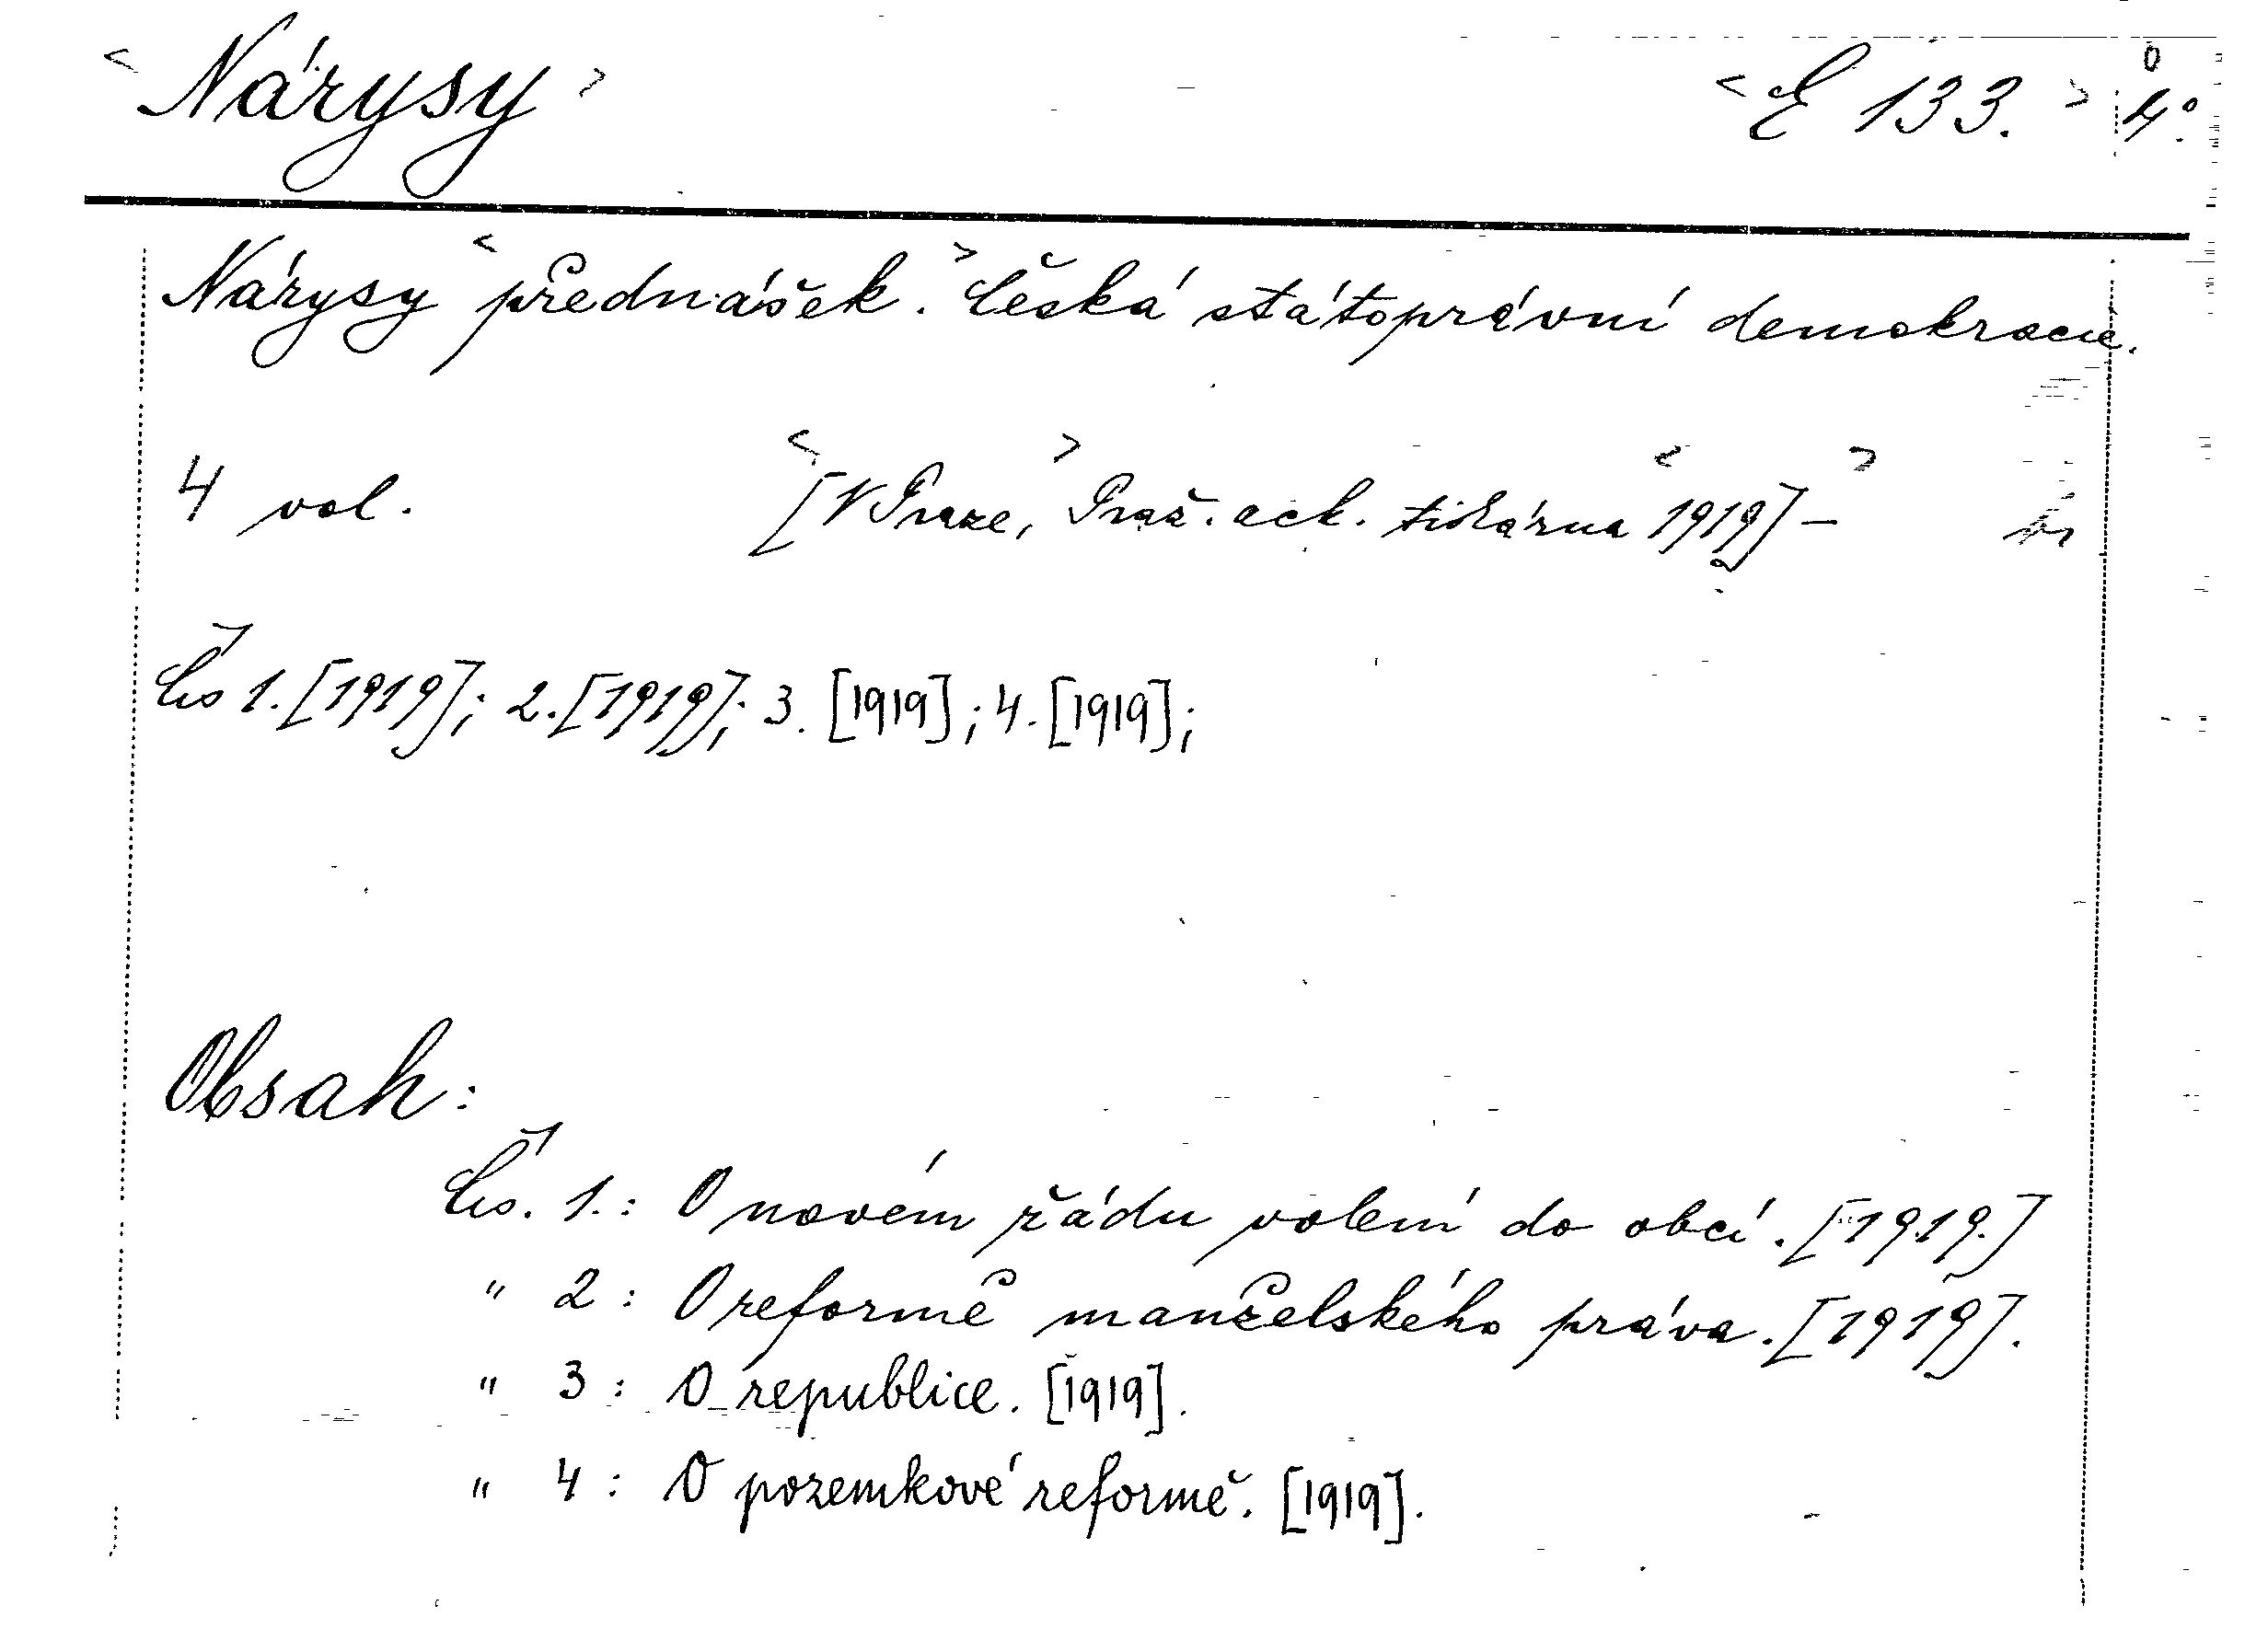 < Nárysy > < E 133. > 4°.
Nárysy < přednášek. > Česká státoprávní demokracie.
4 vol. < [V Praze, > Praž. ack. tiskárna < 1919] – >
Čís 1. [1919]; 2. [1919]; 3. [1919]; 4. [1919];
Obsah:
Čís. 1.: O novém řádu volení do obcí. [1919.]
" 2: O reformě manželského práva. [1919].
" 3: O republice. [1919].
" 4: O pozemkové reformě. [1919].